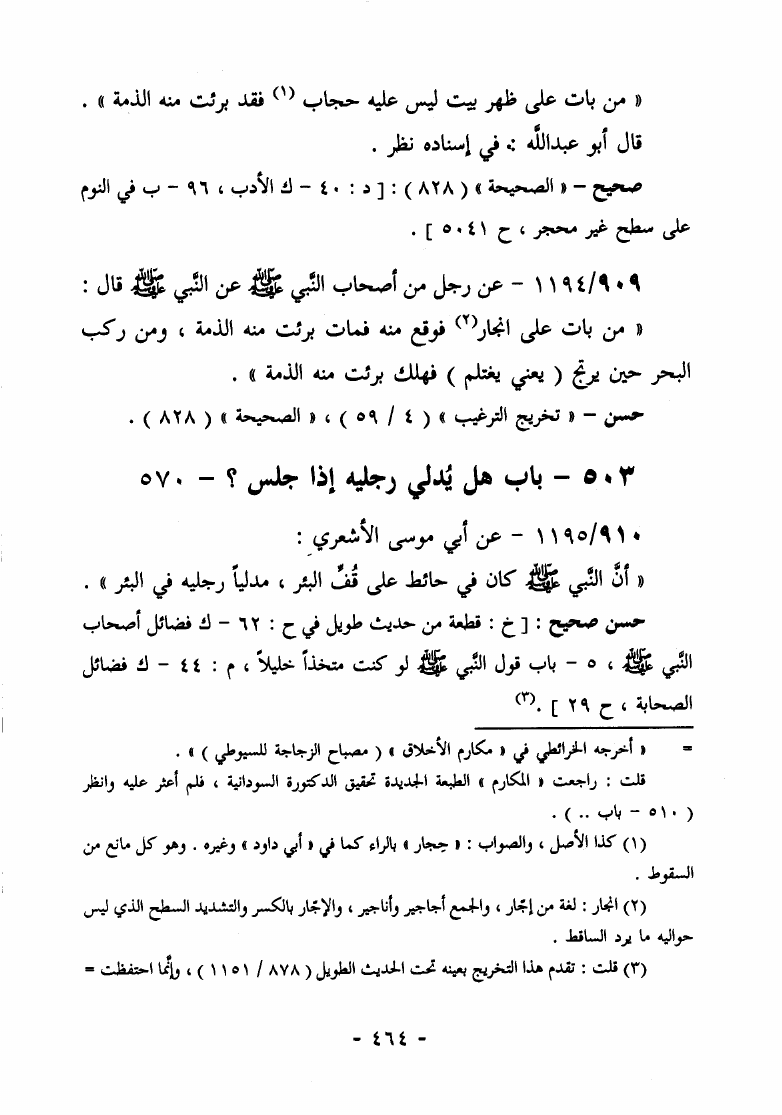 « من بات على ظهر بيت ليس عليه حجاب (١) فقد برئت منه الذمة » .
قال أبو عبدالله : في إسناده نظر .
صحيح – « الصحيحة » ( ٨٢٨ ) : [ د : ٤٠ – ك الأدب ، ٩٦ – ب في النوم
على سطح غير محجر ، ح ٥٠٤١ ] .
١١٩٤/٩٠٩ – عن رجل من أصحاب النَّبي ﷺ عن النَّبي ﷺ قال :
« من بات على انجار(٢) فوقع منه فمات برئت منه الذمة ، ومن ركب
البحر حين يرتج ( يعني يغتلم ) فهلك برئت منه الذمة » .
حسن – « تخريج الترغيب » ( ٤ / ٥٩ ) ، « الصحيحة » ( ٨٢٨ ) .
٥٠٣ – باب هل يُدلي رجليه إذا جلس ؟ – ٥٧٠
١١٩٥/٩١٠ – عن أبي موسى الأشعري :
« أنَّ النَّبي ﷺ كان في حائط على قُفِّ البئر ، مدلياً رجليه في البئر » .
حسن صحيح : [ خ : قطعة من حديث طويل في ح : ٦٢ – ك فضائل أصحاب
النَّبي ﷺ ، ٥ – باب قول النَّبي ﷺ لو كنت متخذاً خليلاً ، م : ٤٤ – ك فضائل
الصحابة ، ح ٢٩ ] .(٣)
= « أخرجه الخرائطي في « مكارم الأخلاق » ( مصباح الزجاجة للسيوطي ) » .
قلت : راجعت « المكارم » الطبعة الجديدة تحقيق الدكتورة السودانية ، فلم أعثر عليه وانظر
( ٥١٠ – باب .. ) .
(١) كذا الأصل ، والصواب : « حجار » بالراء كما في « أبي داود » وغيره . وهو كل مانع من
السقوط .
(٢) انجار : لغة من إجّار ، والجمع أجاجير وأناجير ، والإجّار بالكسر والتشديد السطح الذي ليس
حواليه ما يرد الساقط .
(٣) قلت : تقدم هذا التخريج بعينه تحت الحديث الطويل ( ٨٧٨ / ١١٥١ ) ، وإنَّما احتفظت =
- ٤٦٤ -